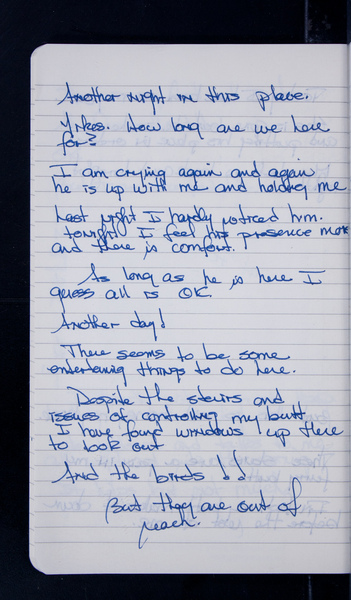 Another night in this place.
Yikes. How long are we here
for?
I am crying again and again
he is up with me and holding me
Last night I hardly noticed him.
tonight I feel his presence more
and there is comfort.
As long as he is here I
guess all is OK.
Another day!
There seems to be some
entertaining things to do here.
Despite the stairs and
issues of controlling my butt
I have found windows up there
to look out
And the birds!!
But they are out of
reach.